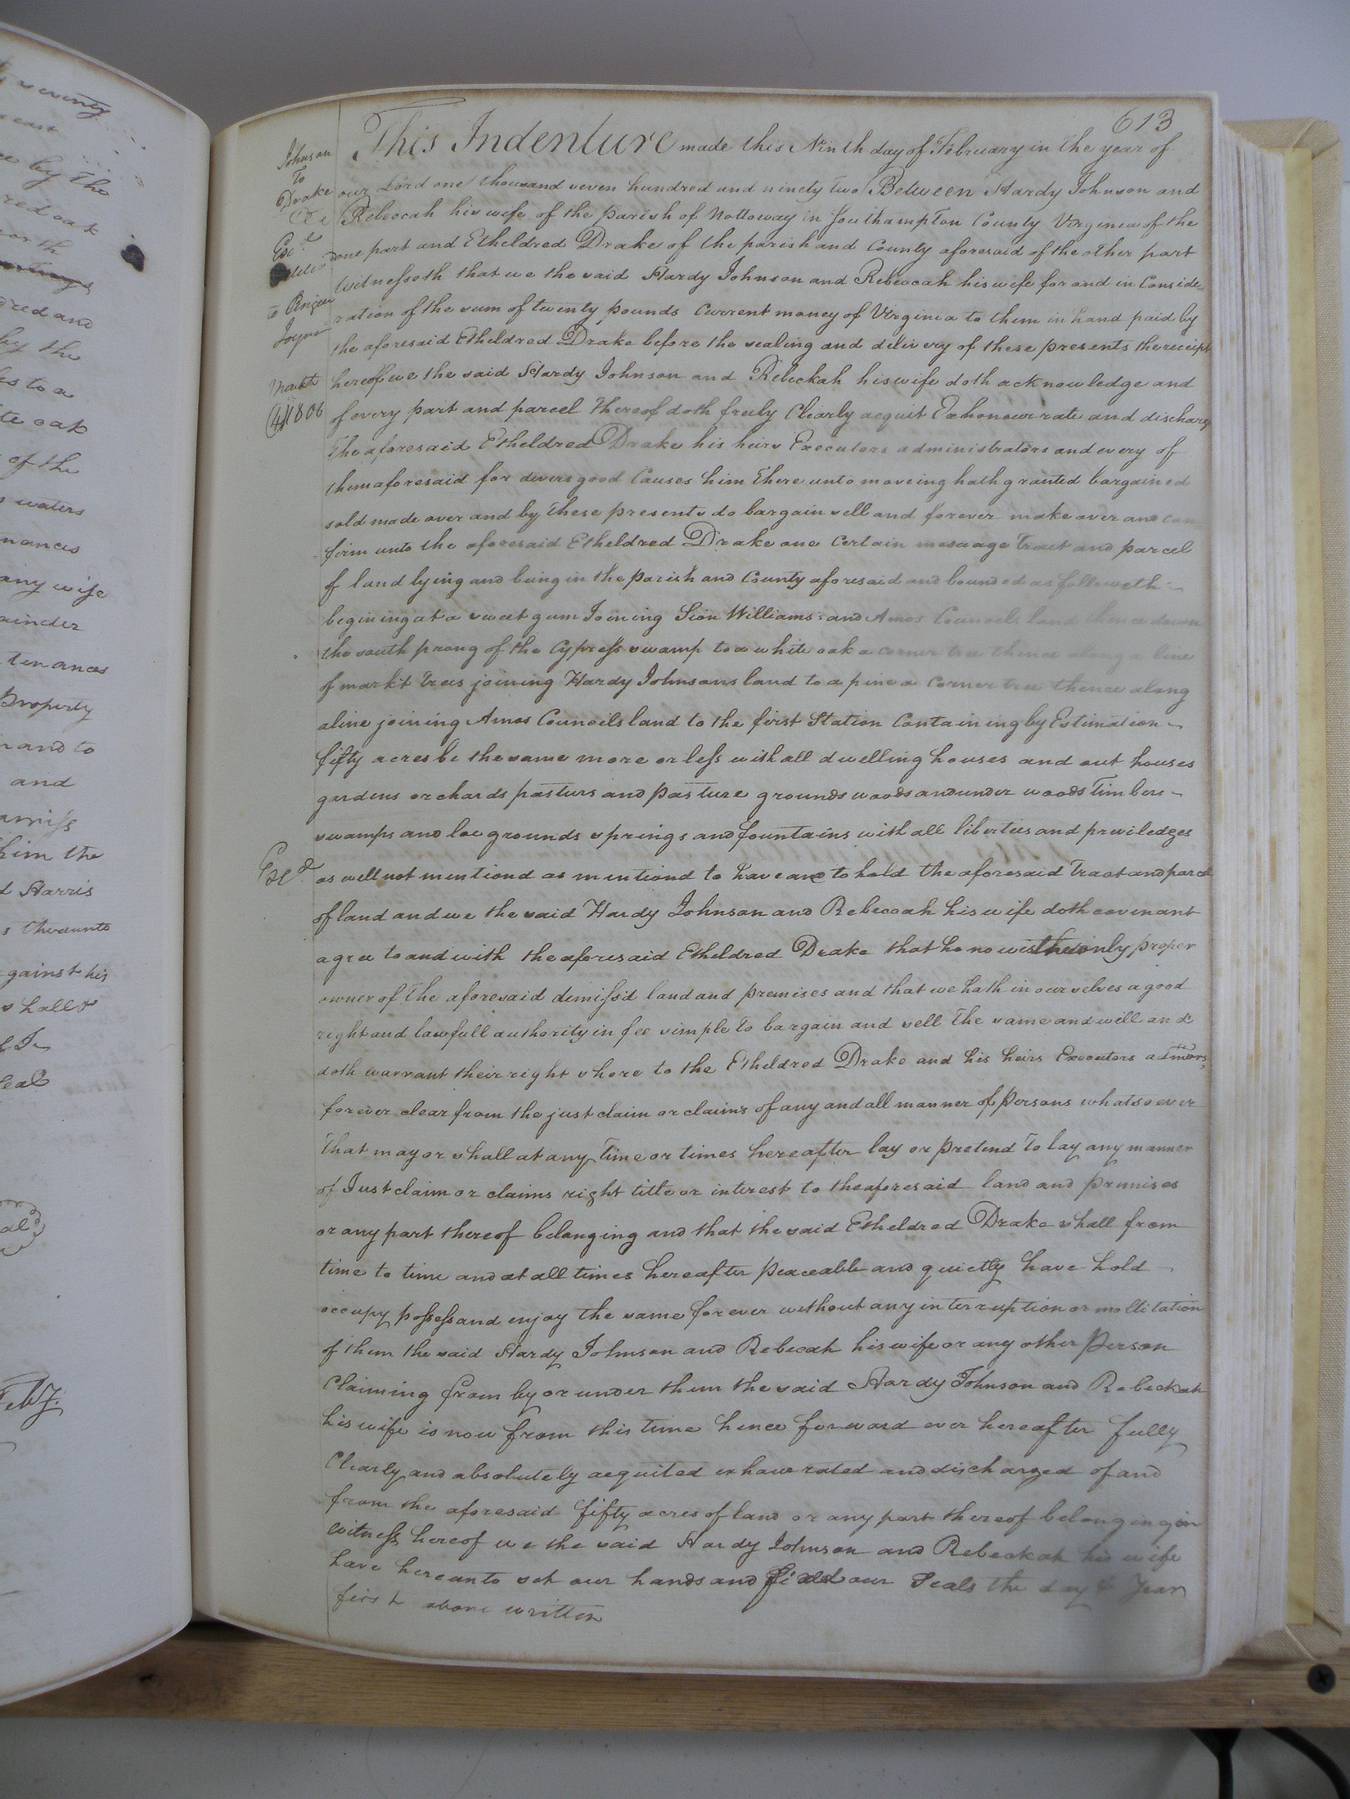 613
Johnson
To
Drake
Exd
to
Joyner
March
14 1806
Exd
This Indenture made this Ninth day of February in the year of
our Lord one thousand seven hundred and ninety two Between Hardy Johnson and
Rebeccah his wife of the parish of Nottoway in Southampton County Virginia of the
one part and Etheldred Drake of the parish and County aforesaid of the other part
Witnesseth that we the said Hardy Johnson and Rebeccah his wife for and in Conside
ration of the sum of twenty pounds Current money of Virginia to them in hand paid by
the aforesaid Etheldred Drake before the sealing and delivery of these presents the receipt
hereof we the said Hardy Johnson and Rebeckah his wife doth acknowledge and
of every part and parcel thereof doth freely Clearly acquit Exhonourate and discharg
the aforesaid Etheldred Drake his heirs Executors administrators and every of
them aforesaid for divers good Causes him thereunto moveing hath granted bargained
sold made over and by these presents do bargain sell and forever make over and con
firm unto the aforesaid Etheldred Drake one Certain message Tract and parcel
of land lying and being in the parish and County aforesaid and bounded as followeth
begining at a sweet gum Joining Sion Williams and Amos Councils land thence down
the south prong of the Cypress swamp to a white oak a corner tree thence along a line
of mark't trees joining Hardy Johnsons land to a pine a Corner tree thence along
a line joining Amos Councils land to the first Station Containing by Estimation
fifty acres be the same more or less with all dwelling houses and out houses
gardens orchards pasturs and pasture grounds woods and under woods Timbers
swamps and low grounds springs and fountains with all liberties and priviledges
as well not mentiond as mentiond to have and to hold the aforesaid Tract and parcel
of land and we the said Hardy Johnson and Rebeccah his wife doth covenant
agree to and with the aforesaid Etheldred Drake that he now is the only proper
owner of the aforesaid demissd land and premises and that we hath in ourselves a good
right and lawfull authority in fee simple to bargain and sell the same and will and
doth warrant their right shore to the Etheldred Drake and his heirs Executors admors
forever clear from the just claim or claims of any and all manner of persons whatsoever
that may or shall at any time or times hereafter lay or pretend to lay any manner
of Just claim or claims right title or interest to the aforesaid land and premises
or any part thereof belonging and that the said Etheldred Drake shall from
time to time and at all times hereafter peaceable and quietly have hold
occupy possess and enjoy the same forever without any interruption or molitation
of them the said Hardy Johnson and Rebecah his wife or any other person
Claiming from by or under them the said Hardy Johnson and Rebeckah
his wife is now from this time hence forward ever hereafter fully
Clearly and absolutely acquited exhonerated and discharged of and
from the aforesaid fifty acres of land or any part thereof belonging in
witness hereof we the said Hardy Johnson and Rebeckah his wife
have hereunto set our hands and fixed our Seals the day & Year
first above written